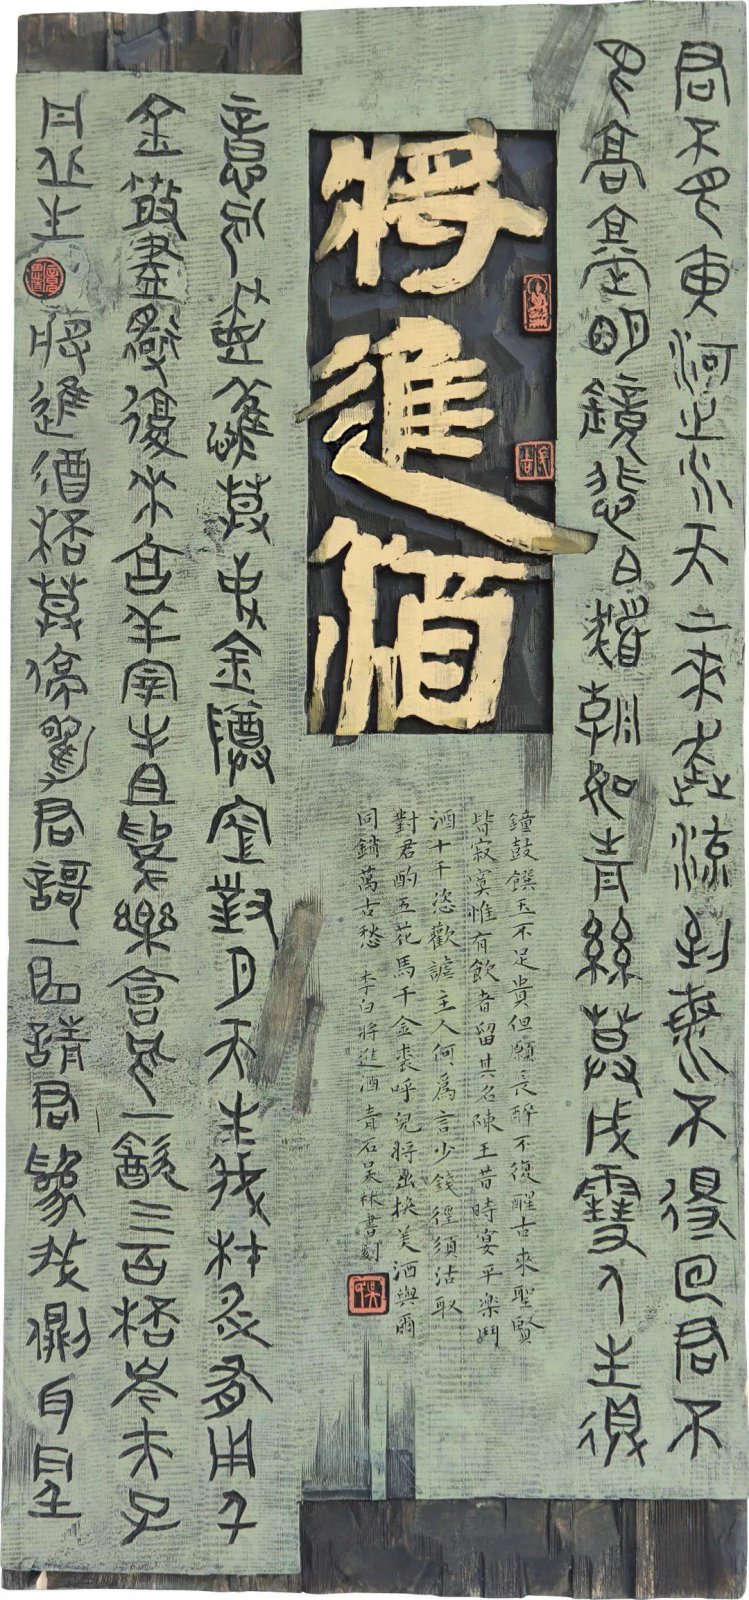 君不見黃河之水天上來奔流到海不復回君不
見高堂明鏡悲白髮朝如青絲暮成雪人生得
將進酒
鐘鼓饌玉不足貴但願長醉不復醒古來聖賢
皆寂寞惟有飲者留其名陳王昔時宴平樂鬥
酒十千恣歡謔主人何為言少錢徑須沽取
對君酌五花馬千金裘呼兒將出換美酒與爾
同銷萬古愁 李白將進酒 青石吳林書刻
意須盡歡莫使金樽空對月天生我材必有用千
金散盡還復來烹羊宰牛且為樂會須一飲三百杯岑夫子
丹丘生 將進酒杯莫停與君歌一曲請君為我側耳聽